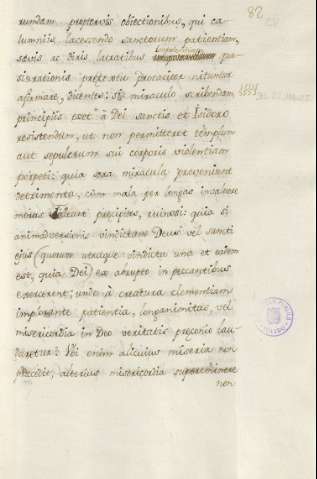 82
rundam protervis obiectionibus, qui ca
lumniis lacessendo sanctorum patientiam,
sævis ac diris latratibus
ratione procaciter nituntur
afirmare, dicentes: Si miraculo scribendam
principiis esset à Dei sanctis et Isidoro
resistendum, ut non permitteret templum
aut sepulcrum sui corporis violentiam
perpeti; quia sera miracula proveniunt
detrimento, cùm mala per longas invaluere
moras, præcipites, ruinosi: quia si
animadversionis vindictam Deus vel sancti
ejus (quorum utraque vindicta una et eadem
est, quia Dei) ex abrupto in peccantibus
exercerent; unde à creatura clementiam
implorante patientia, longanimitas, vel
misericordia in Deo veritatis præconio lau
daretur? Ubi enim alicuius miseria non
præcedit, alterius misericordia supereminere
non